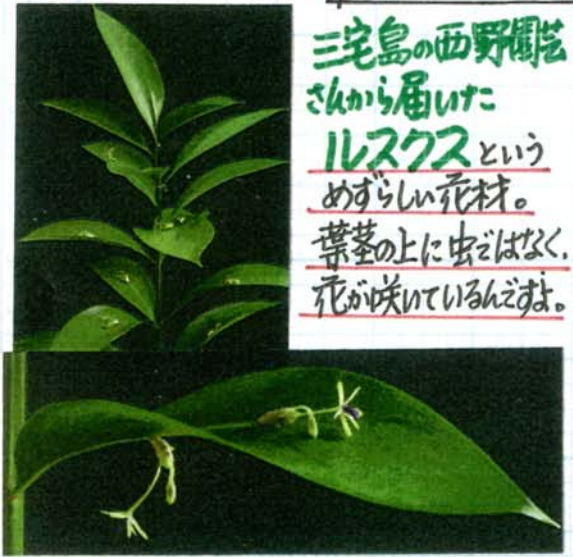 三宅島の西野園芸
さんから届いた
ルスクスという
めずらしい花材。
葉茎の上に虫ではなく、
花が咲いているんですよ。